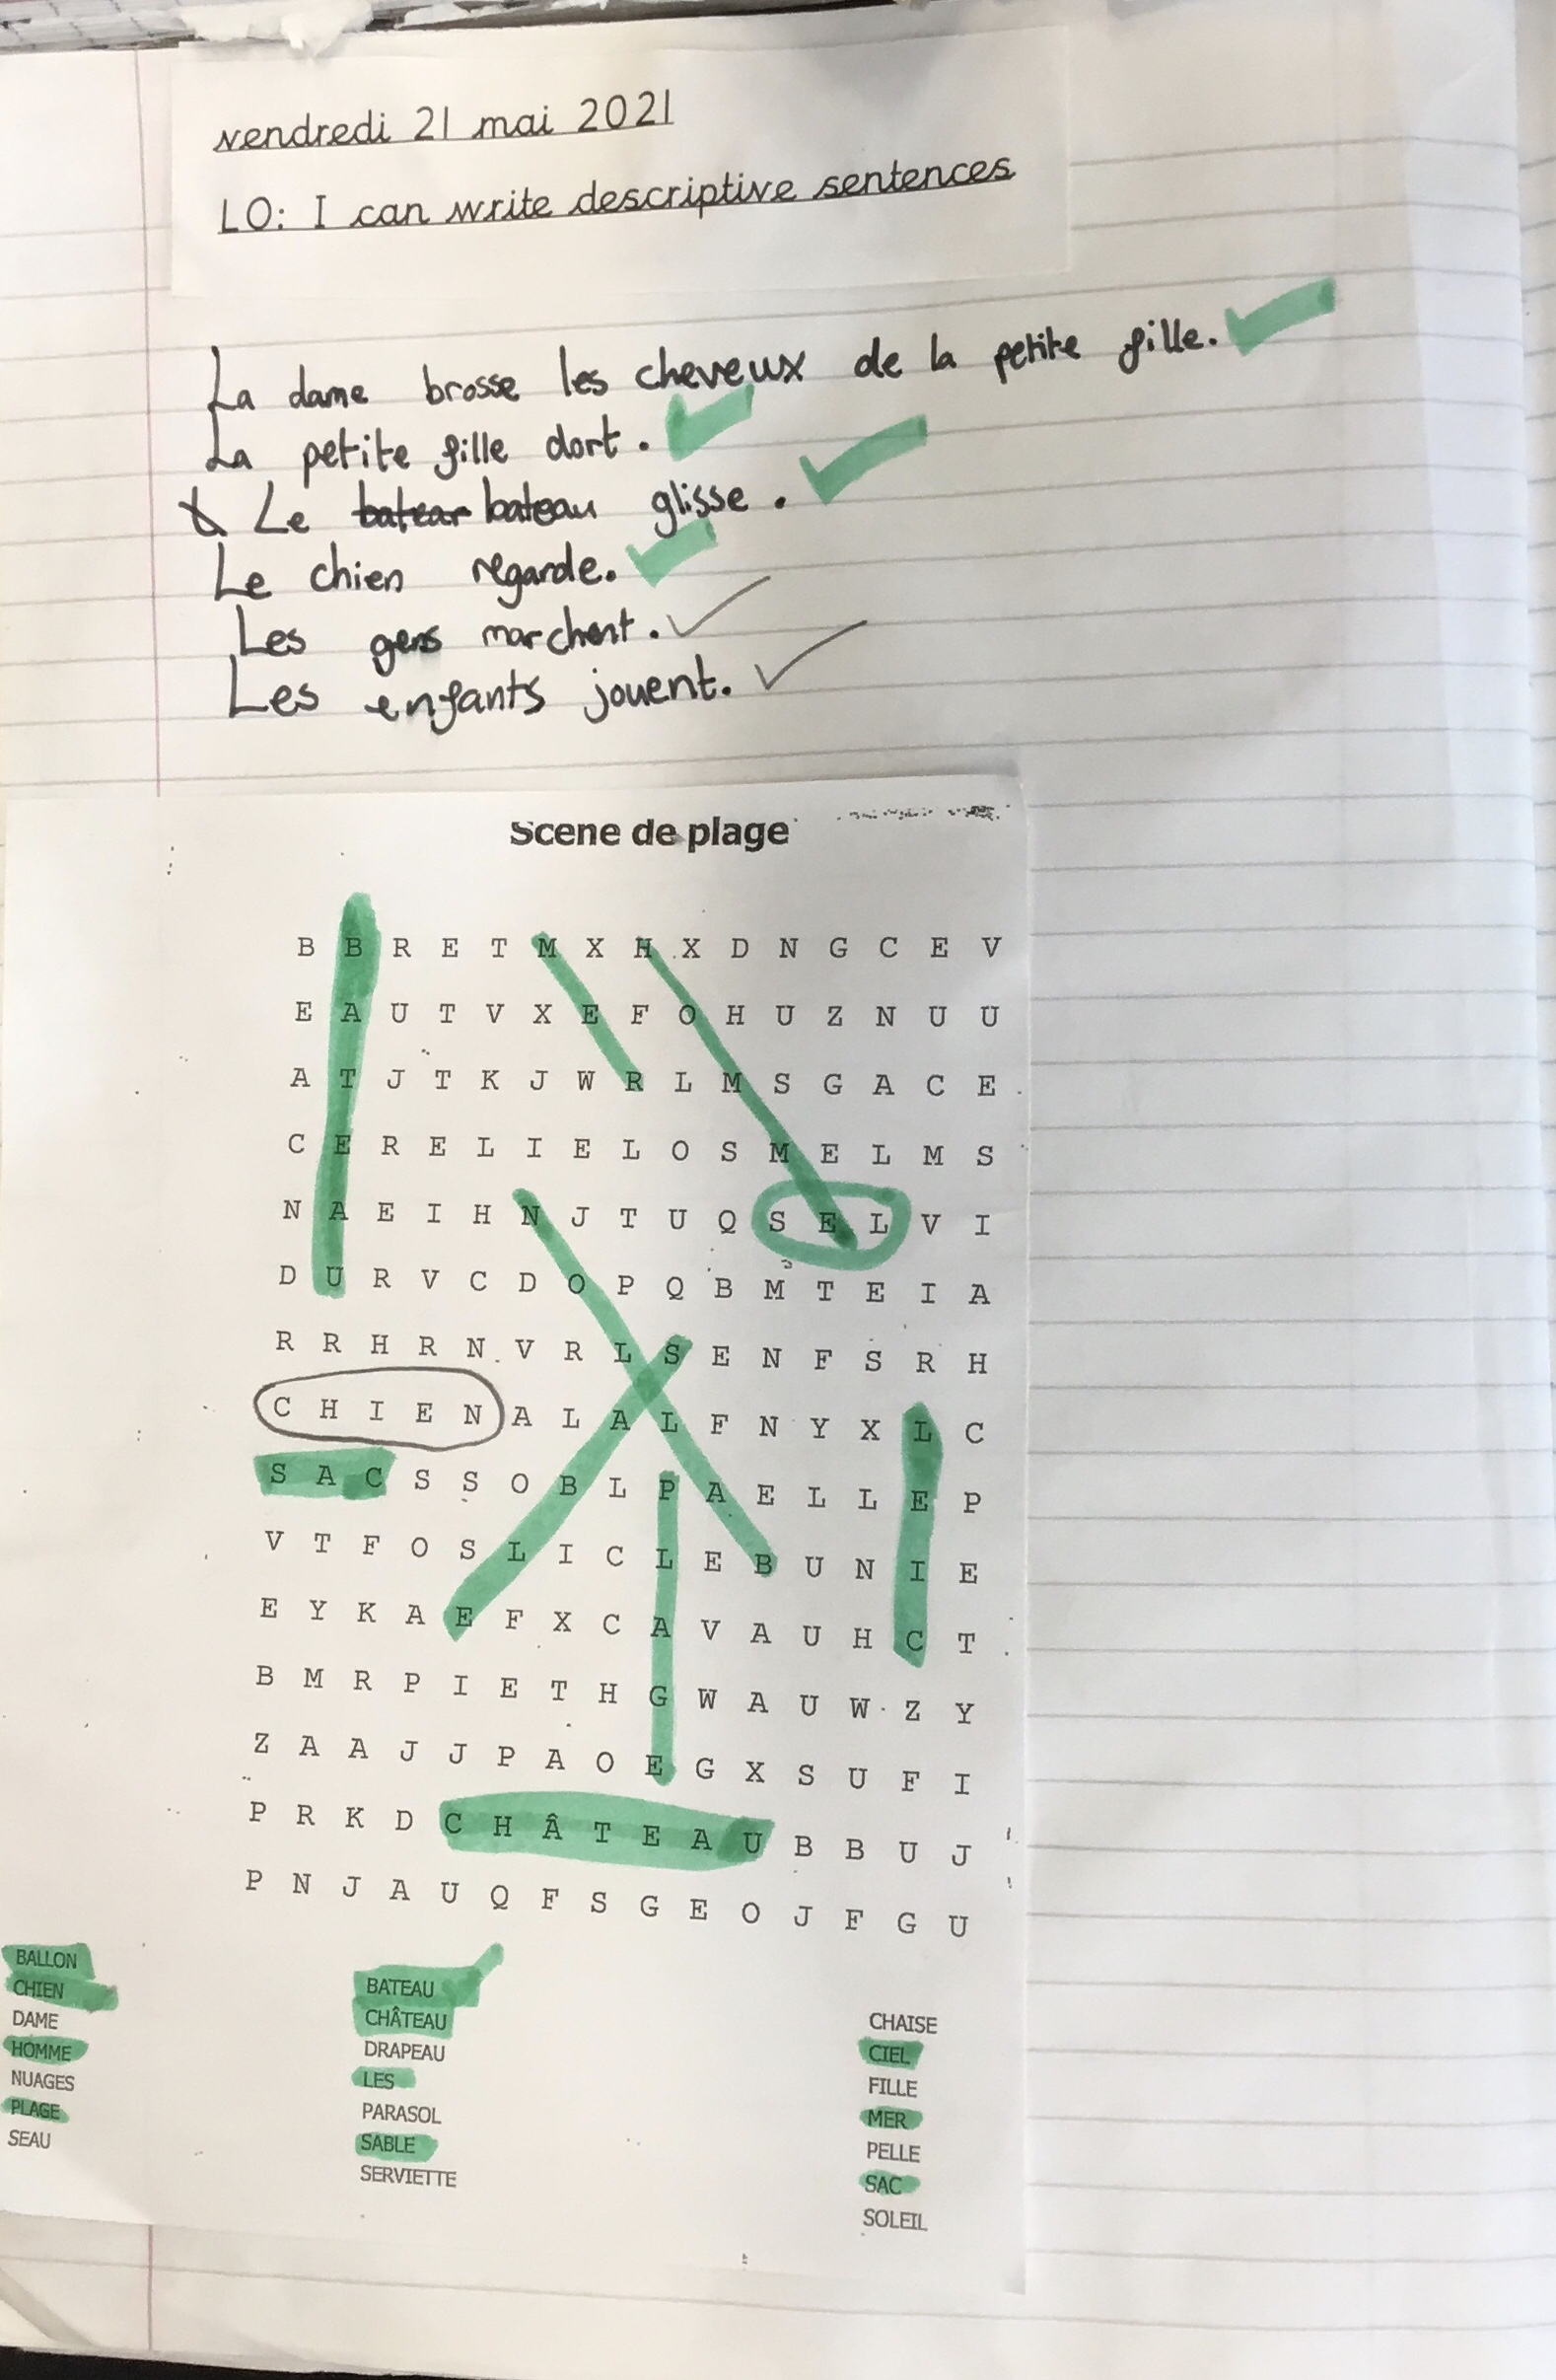 vendredi 21 mai 2021
LO: I can write descriptive sentences
La dame brosse les cheveux de la petite fille.
La petite fille dort.
Le batear bateau glisse.
Le chien regarde.
Les gens marchent.
Les enfants jouent.
Scene de plage
B B R E T M X H X D N G C E V
E A U T V X E F O H U Z N U U
A T J T K J W R L M S G A C E
C E R E L I E L O S M E L M S
N A E I H N J T U Q S E L V I
D U R V C D O P Q B M T E I A
R R H R N V R L S E N F S R H
C H I E N A L A L F N Y X L C
S A C S S O B L P A E L L E P
V T F O S L I C L E B U N I E
E Y K A E F X C A V A U H C T
B M R P I E T H G W A U W Z Y
Z A A J J P A O E G X S U F I
P R K D C H Â T E A U B B U J
P N J A U Q F S G E O J F G U
BALLON
CHIEN
DAME
HOMME
NUAGES
PLAGE
SEAU
BATEAU
CHÂTEAU
DRAPEAU
LES
PARASOL
SABLE
SERVIETTE
CHAISE
CIEL
FILLE
MER
PELLE
SAC
SOLEIL